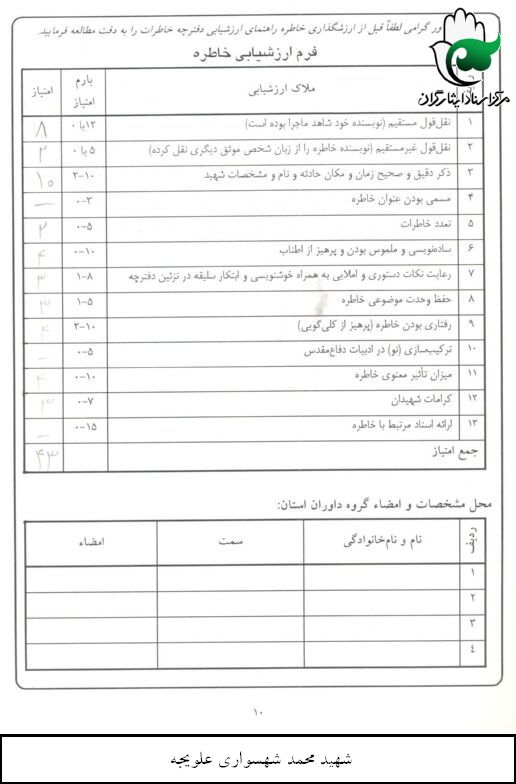 ور گرامی لطفاً قبل از ارزشگذاری خاطره راهنمای ارزشیابی دفترچه خاطرات را به دقت مطالعه فرمایید.
فرم ارزشیابی خاطره
مرکز اسناد ایثارگران
ملاک ارزشیابی بارم امتیاز امتیاز
۱ نقل‌قول مستقیم (نویسنده خود شاهد ماجرا بوده است) ۱۲ یا ۰ ۸
۲ نقل‌قول غیرمستقیم (نویسنده خاطره را از زبان شخص موثق دیگری نقل کرده) ۵ یا ۰ ۲
۳ ذکر دقیق و صحیح زمان و مکان حادثه و نام و مشخصات شهید ۲-۱۰ ۱۰
۴ مسمی بودن عنوان خاطره ۰-۳ –
۵ تعدد خاطرات ۰-۵ ۲
۶ ساده‌نویسی و ملموس بودن و پرهیز از اطناب ۰-۱۰ ۴
۷ رعایت نکات دستوری و املایی به همراه خوشنویسی و ابتکار سلیقه در تزئین دفترچه ۱-۸ ۳
۸ حفظ وحدت موضوعی خاطره ۱-۵ ۳
۹ رفتاری بودن خاطره (پرهیز از کلی‌گویی) ۲-۱۰ ۴
۱۰ ترکیب‌سازی (نو) در ادبیات دفاع‌مقدس ۰-۵ –
۱۱ میزان تأثیر معنوی خاطره ۰-۱۰ ۴
۱۲ کرامات شهیدان ۰-۷ ۳
۱۳ ارائه اسناد مرتبط با خاطره ۰-۱۵ –
جمع امتیاز ۴۳
محل مشخصات و امضاء گروه داوران استان:
ردیف نام و نام‌خانوادگی سمت امضاء
۱
۲
۳
۴
۱۰
شهید محمد شهسواری علویجه